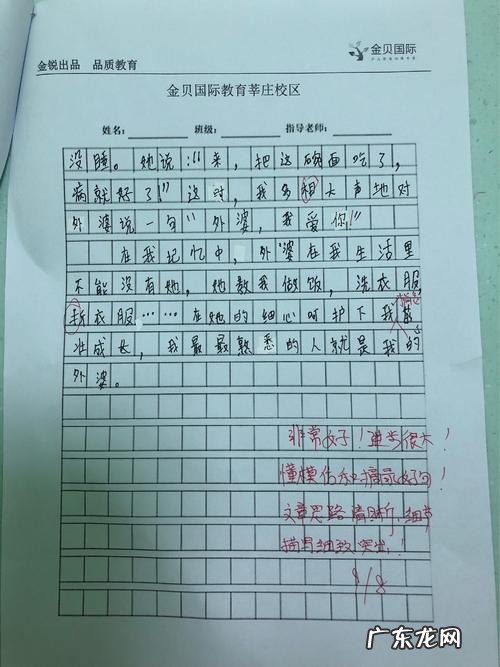 金锐出品 品质教育
金贝国际
金贝国际教育莘庄校区
姓名: 班级: 指导老师:
没睡。她说:“来,把这碗面吃了,
病就好了!”这时,我多想大声地对
外婆说一句“外婆,我爱你!”
在我记忆中,外婆在我生活里
不能没有她,她教我做饭,洗衣服,
折衣服……在她的细心呵护下我
成长,我最最熟悉的人就是我的
外婆。
非常好!进步很大!
懂模仿和摘录好句!
文章思路清晰,细节
描写细致突出!
9/8
广东龙网